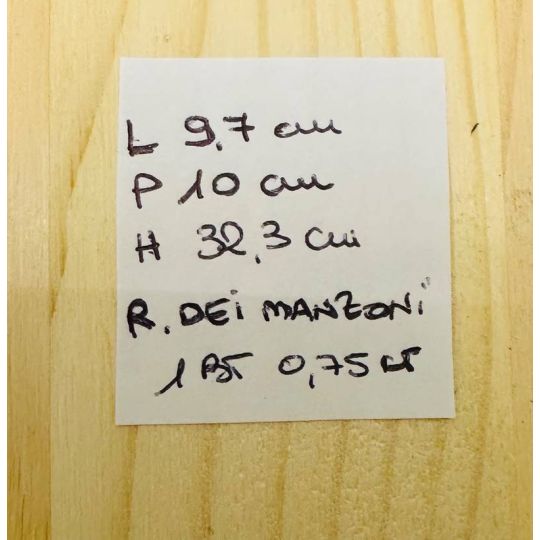 L 9,7 cm
P 10 cm
H 32,3 cm
R. DEI MANZONI
1 BT 0,75 LT